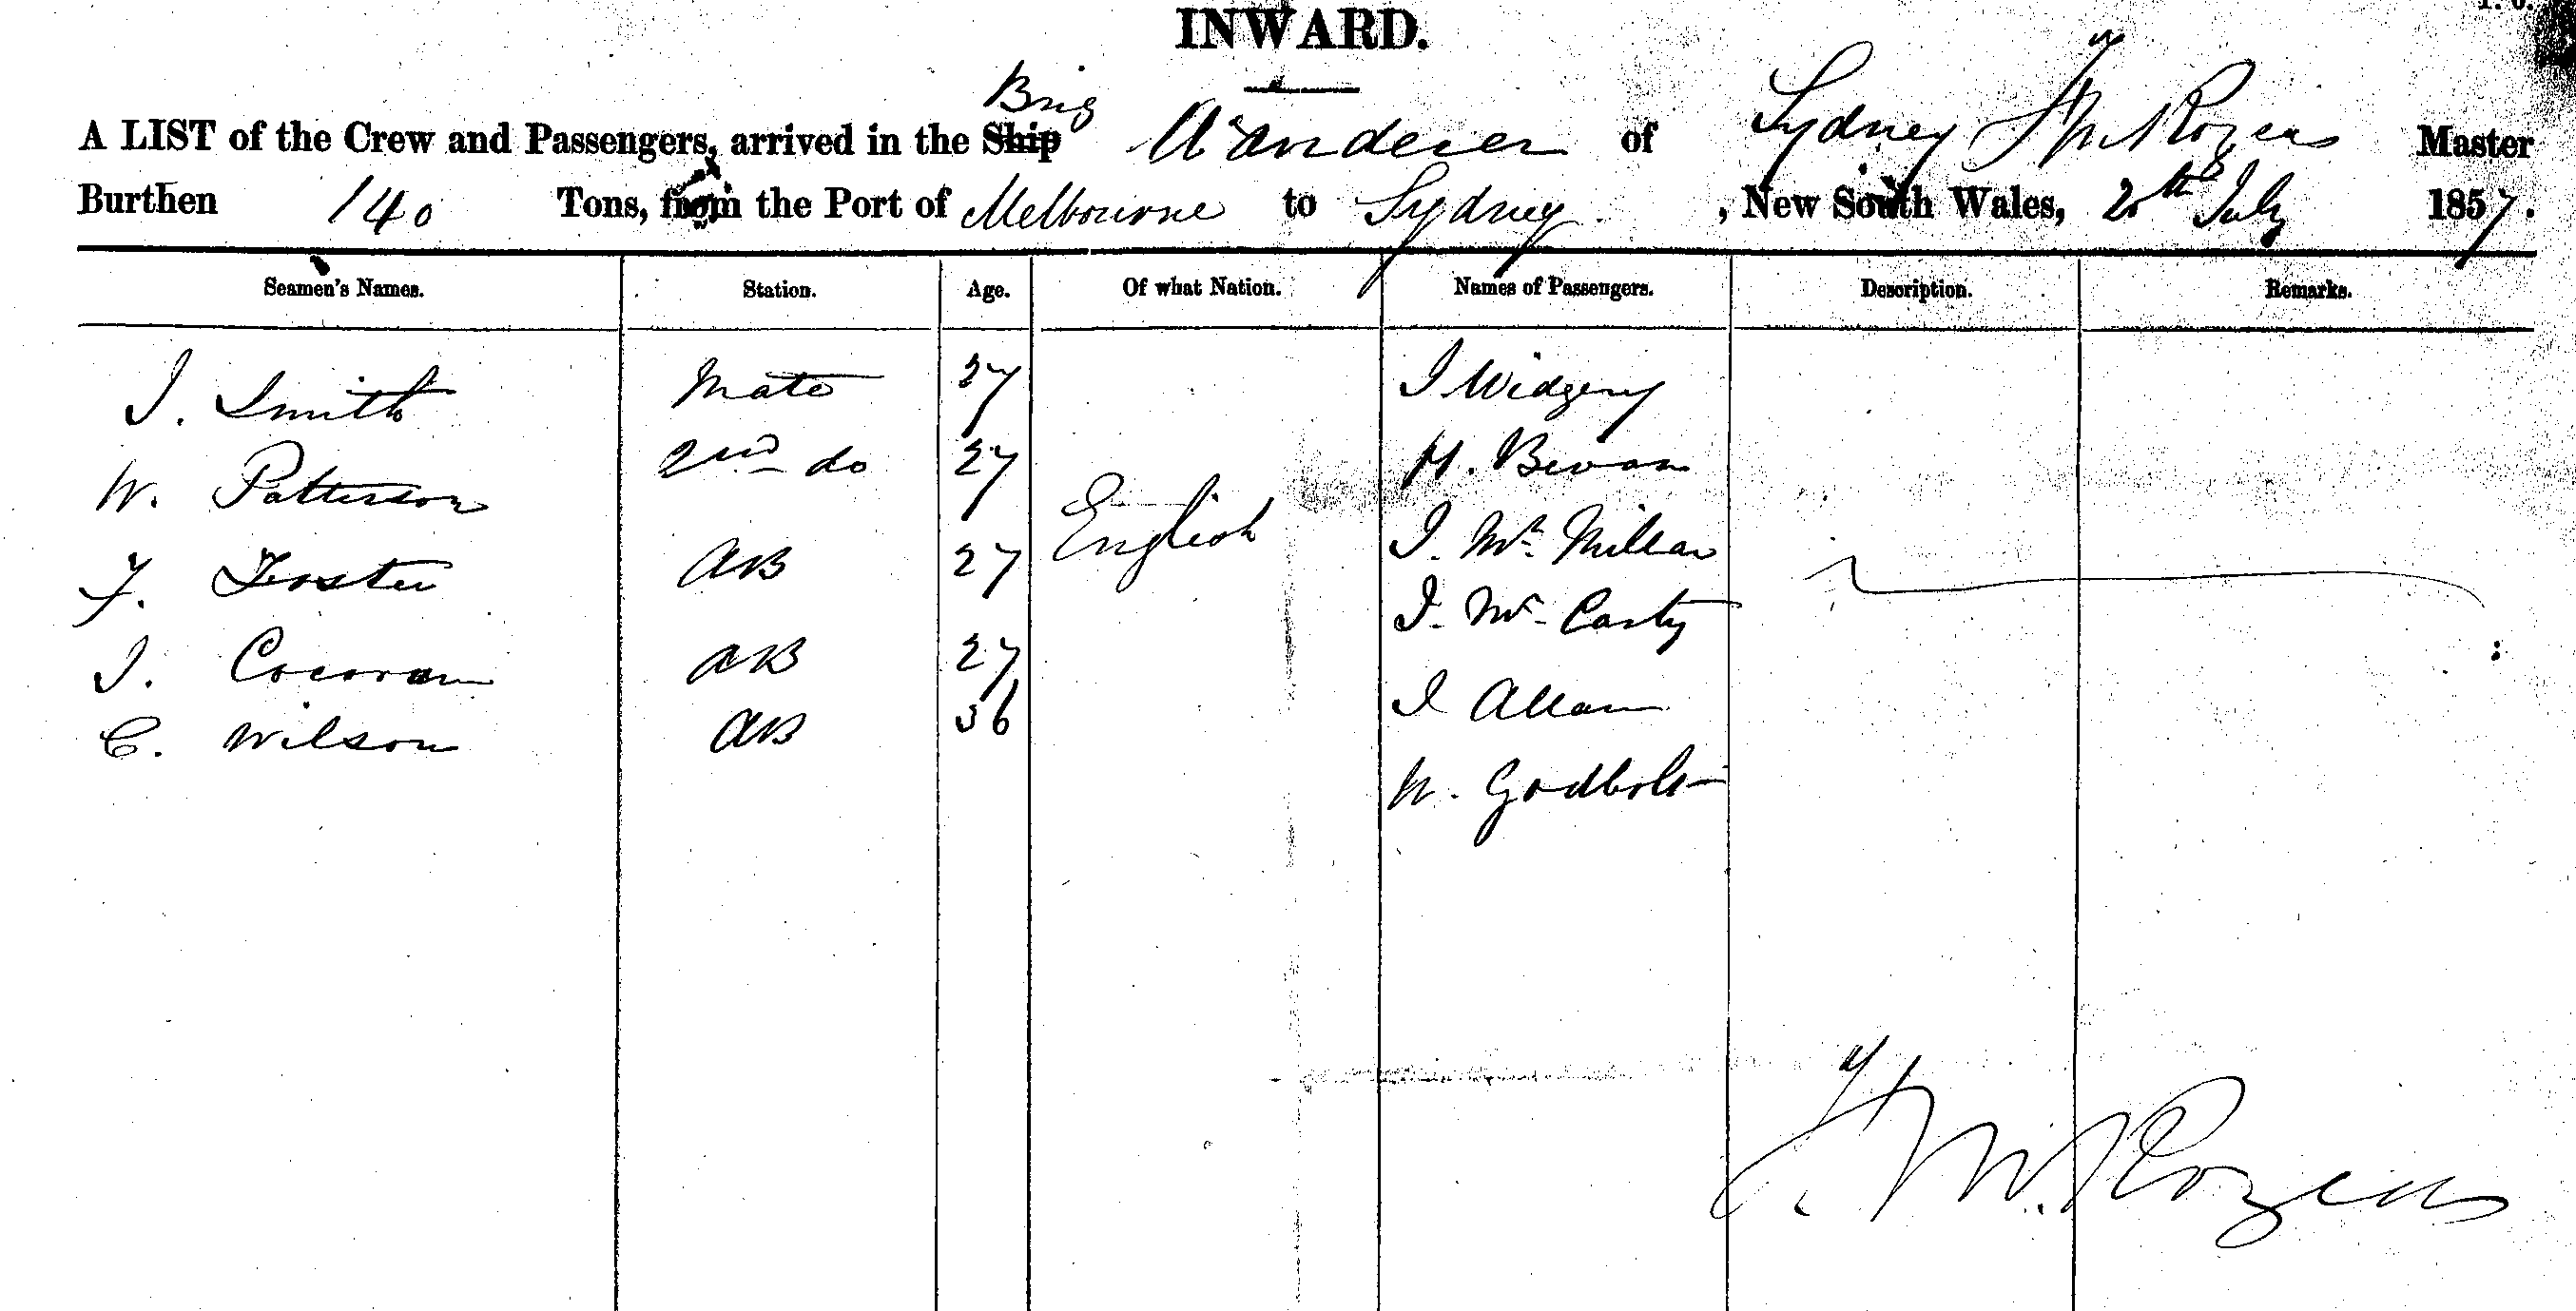 INWARD.
Brig
A LIST of the Crew and Passengers, arrived in the Ship Wanderer of Sydney F M Rogers Master
Burthen 140 Tons, from the Port of Melbourne to Sydney, New South Wales, 20th July 1857.
Seamen's Names. Station. Age. Of what Nation. Names of Passengers. Description. Remarks.
J. Smith Mate 27 J Widgery
W. Patterson 2nd do 27 H. Bevan
F. Foster AB 27 English J. Mc Millan
J. Cocoran AB 27 J. Mc Carty
C. Wilson AB 36 J Allan
W. Godbolt
F. M. Rogers